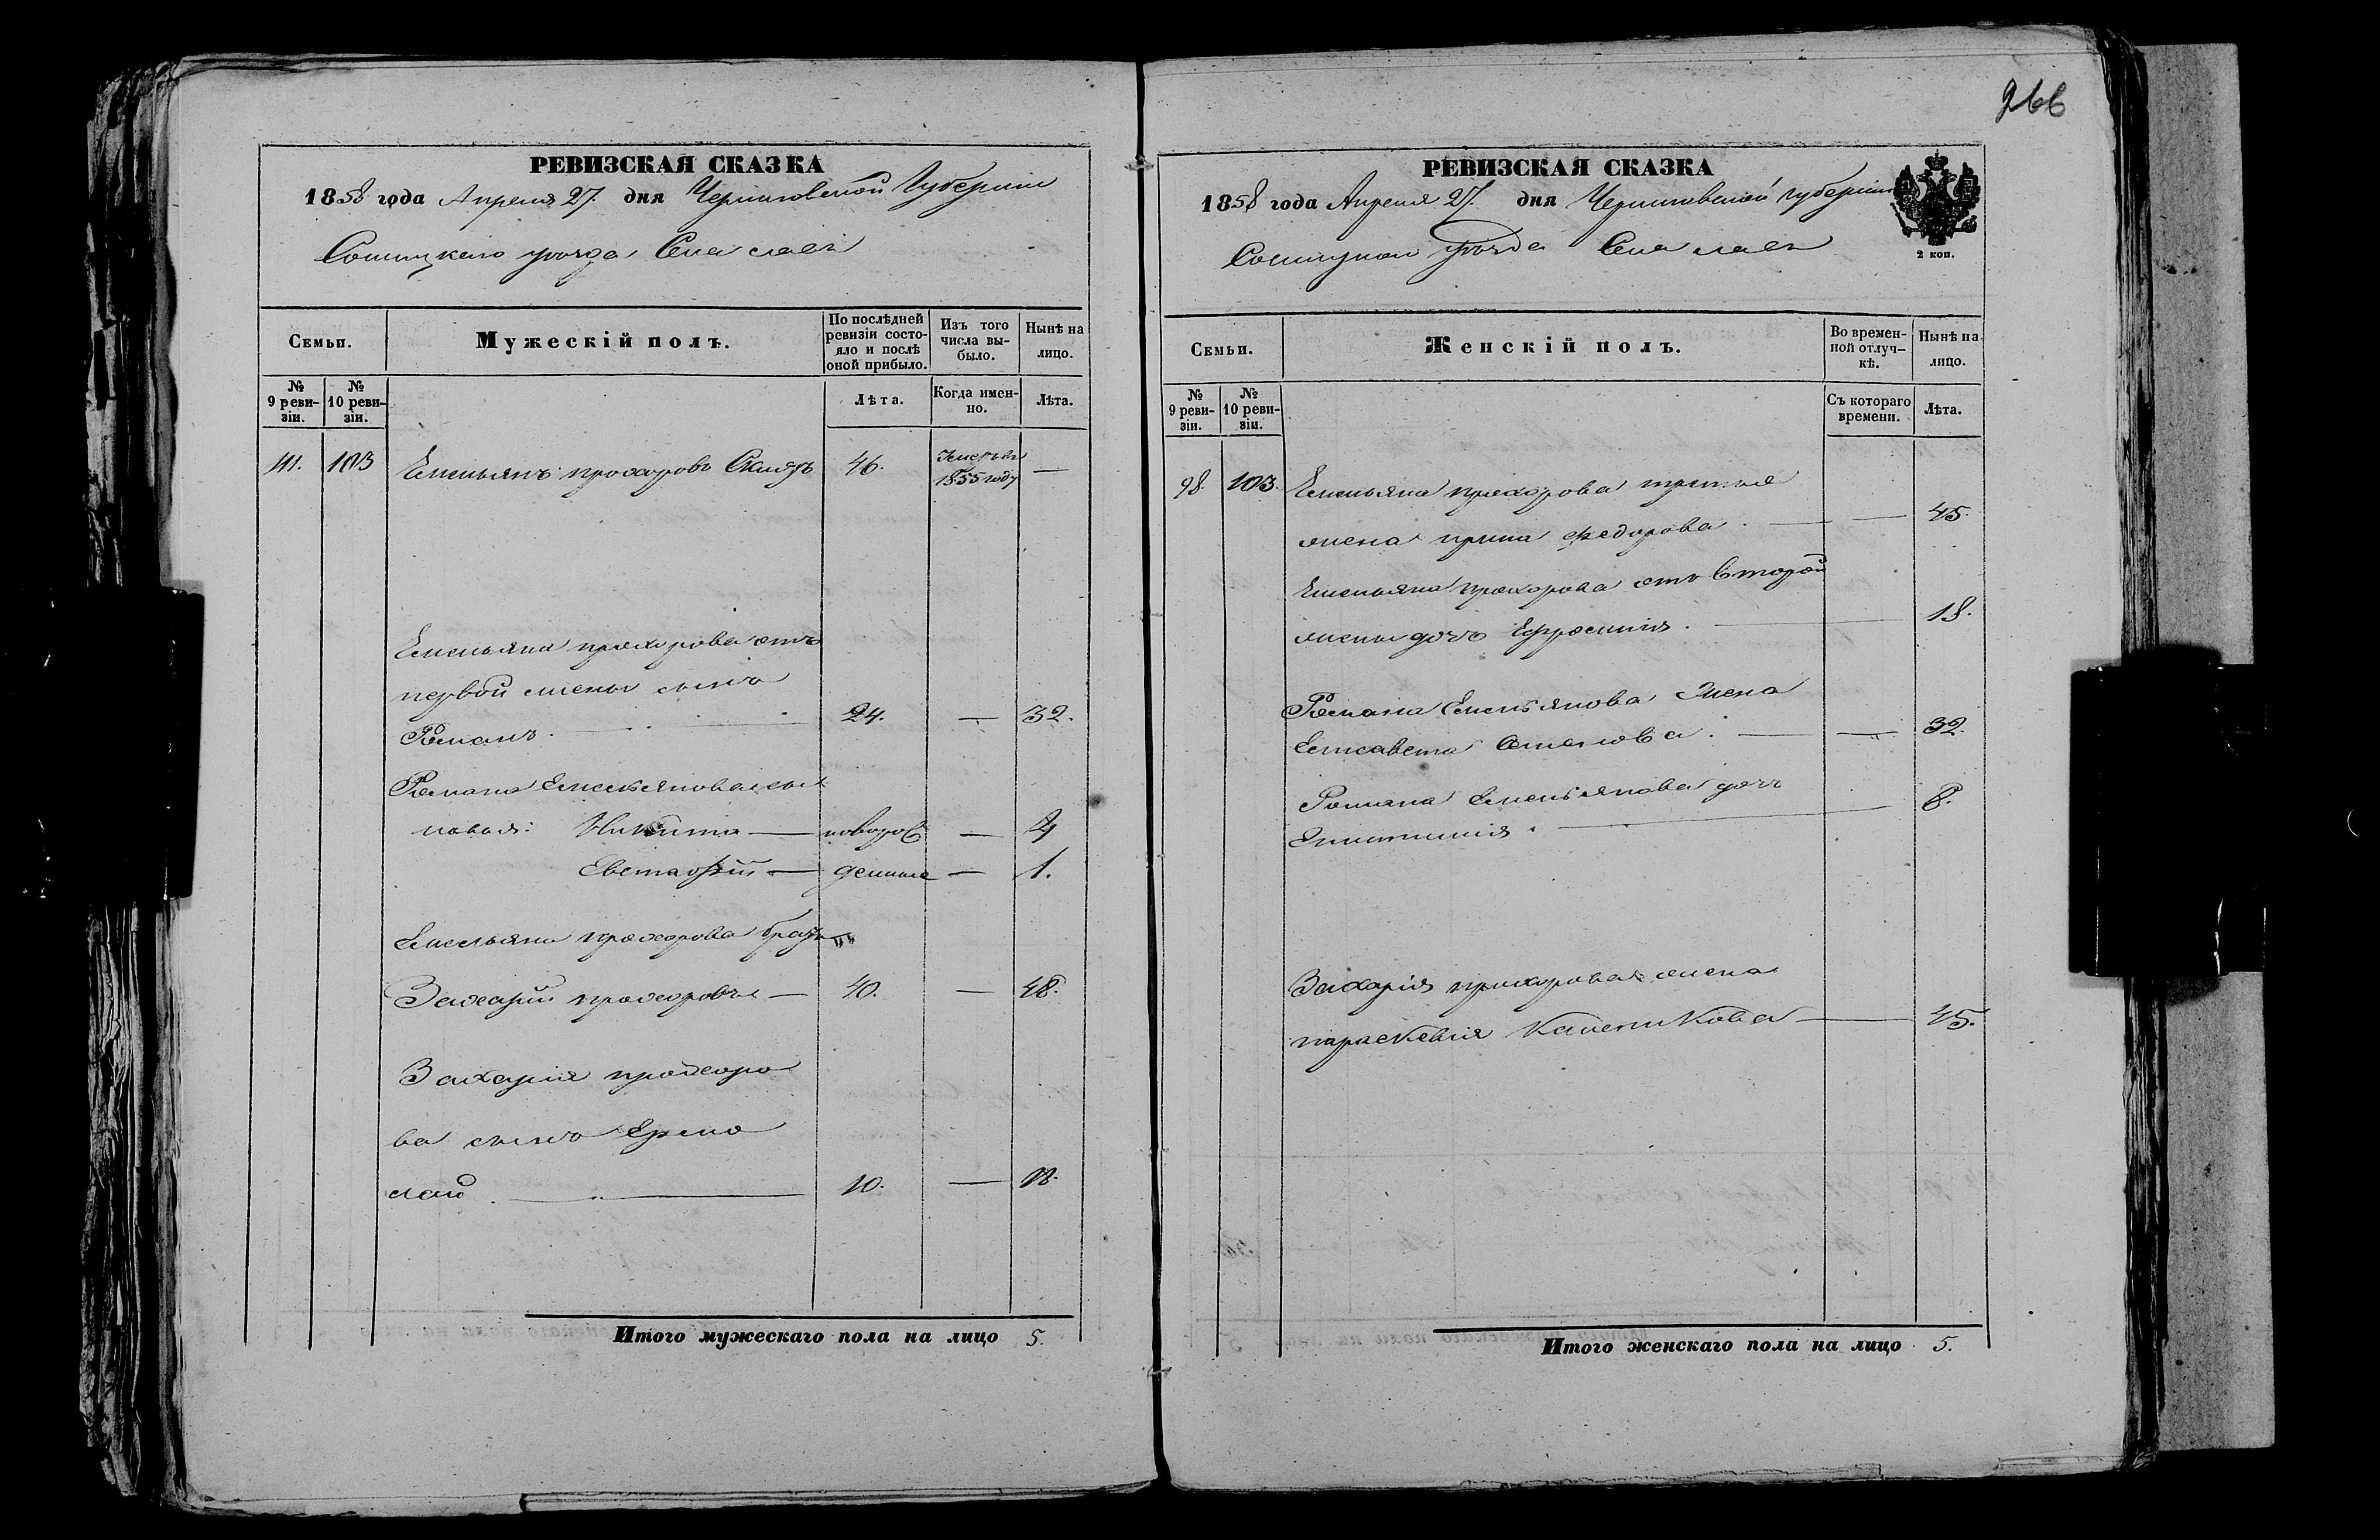 266
РЕВИЗСКАЯ СКАЗКА
1858 года Апреля 27. дня Черниговской Губерніи
Сосницкаго уѣзда Села
Семьи.
Мужескій полъ.
По послѣдней ревизіи состояло и послѣ оной прибыло.
Изъ того числа выбыло.
Нынѣ на лицо.
№ 9 ревизіи.
№ 10 ревизіи.
Лѣта.
Когда именно.
Лѣта.
103 Емельянъ прохоровъ 46. 1855 году —
Емельяна прохорова отъ
первой жены сынъ
Романъ. 24. — 32.
Романа Емельянова сы
новья: Никита — новорож — 4
Евстафій — денные — 1.
Емельяна прохорова братъ
Захарій прохоровъ — 40. — 48.
Захарія прохоро
ва сынъ Ермо
лай. — 10. — 18.
Итого мужескаго пола на лицо 5.
РЕВИЗСКАЯ СКАЗКА
1858 года Апреля 27. дня Черниговской губерніи
Сосницкаго уѣзда Села
2 коп.
Семьи.
Женскій полъ.
Во временной отлучкѣ.
Нынѣ на лицо.
№ 9 ревизіи.
№ 10 ревизіи.
Съ котораго времени.
Лѣта.
98. 103. Емельяна прохорова третья
жена ирина федорова. — — 45.
Емельяна прохорова отъ второй
жены дочь Ефросинія. — 18.
Романа Емельянова жена
Елисавета Семенова. — — 32.
Романа Емельянова дочь
— 8.
Захарія прохорова жена
параскевія — 45.
Итого женскаго пола на лицо 5.